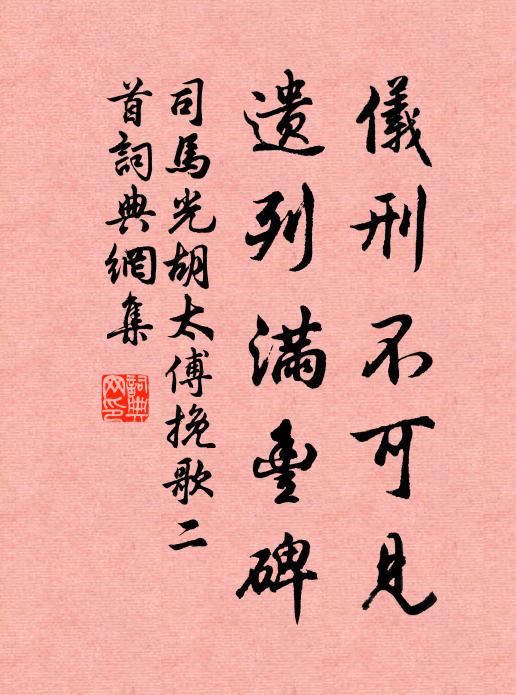 儀刑不可見
遺列滿豐碑
司馬光胡太傅挽歌二
首詞典網集
詞典
网印